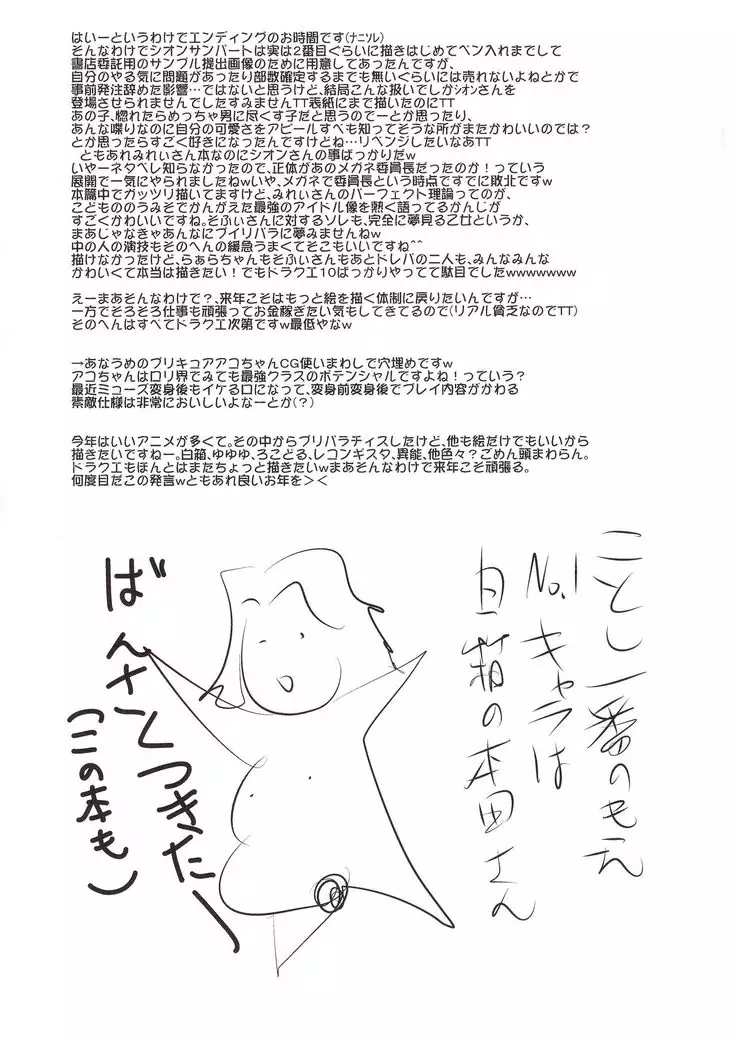 はいーというわけでエンディングのお時間です(ﾅﾆｿﾚ)
そんなわけでシオンサンパートは実は2番目ぐらいに描きはじめてペン入れまでして
書店委託用のサンプル提出画像のために用意してあったんですが、
自分のやる気に問題があったり部数確定するまでも無いぐらいには売れないよねとかで
事前発注辞めた影響…ではないと思うけど、結局こんな扱いでしかｼｵﾝさんを
登場させられませんでしたすみませんTT表紙にまで描いたのにTT
あの子、惚れたらめっちゃ男に尽くす子だと思うのでーとか思ったり、
あんな喋りなのに自分の可愛さをアピールすべも知ってそうな所がまたかわいいのでは?
とか思ったらすごく好きになったんですけどね…リベンジしたいなあTT
ともあれみれぃさん本なのにシオンさんの事ばっかりだw
いやーネタベレ知らなかったので、正体があのメガネ委員長だったのか!っていう
展開で一気にやられましたねwいや、メガネで委員長という時点ですでに敗北ですw
本篇中でガッツリ描いてますけど、みれぃさんのパーフェクト理論ってのが、
こどものののうみそでかんがえた最強のアイドル像を熱く語ってるかんじが
すごくかわいいですね。そふぃさんに対するソレも、完全に夢見る乙女というか、
まあじゃなきゃあんなにプイリパラに夢みませんねw
中の人の演技もそのへんの緩急うまくてそこもいいですね^^
描けなかったけど、らぁらちゃんもそふぃさんもあとドレパの二人も、みんなみんな
かわいくて本当は描きたい!でもドラクエ10ばっかりやってて駄目でしたwwwwwww
えーまあそんなわけで?、来年こそはもっと絵を描く体制に戻りたいんですが…
一方でそろそろ仕事も頑張ってお金稼ぎたい気もしてきてるので(リアル貧乏なのでTT)
そのへんはすべてドラクエ次第ですw最低やなw
→あなうめのプリキュアアコちゃんCG使いまわしで穴埋めですw
アコちゃんはロリ界でみても最強クラスのポテンシャルですよね!っていう?
最近ミューズ変身後もイケる口になって、変身前変身後でプレイ内容がかわる
素敵仕様は非常においしいよなーとか(?)
今年はいいアニメが多くて。その中からプリパラチィスしたけど、他も絵だけでもいいから
描きたいですねー。白箱、ゆゆゆ、ろこどる、レコンギスタ、異能、他色々?ごめん頭まわらん。
ドラクエもほんとはまたちょっと描きたいwまあそんなわけで来年こそ頑張る。
何度目だこの発言wともあれ良いお年を><
ことし一番のもえ
No.1キャラは
白箱の本田さん
ばんさくつきたー
(この本も)